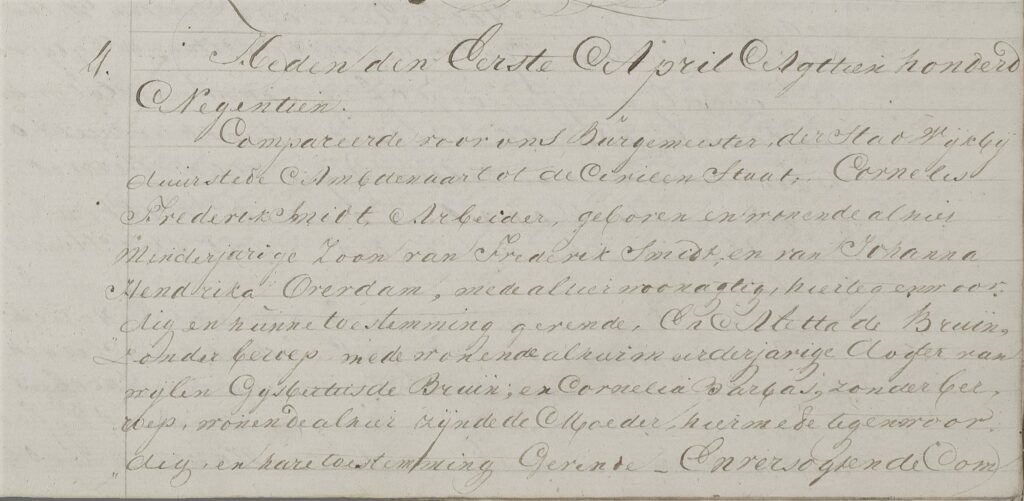 4. Heden den Eerste April Agttien honderd
Negentien.
Compareerde voor ons Burgemeester, der Stad Wykby
duurstede Ambdenaar tot de Civieen Staat, Cornelis
Frederik Smidt, Arbeider, geboren en wonende alhier
Minderjarige Zoon van Frederik Smidt, en van Johanna
Hendrika Overdam, mede alhier woonagtig, hier tegenwoor,
dig en hunne toestemming gevende, En Aletta de Bruin,
zonder beroep mede wonende alhier meerderjarige dogter van
wylen Gysbertus de Bruin, en Cornelia Barbas, zonder be,
roep, wonende alhier zynde de Moeder, hier mede tegenwoor
dig, en hare toestemming Gevende _ En versogten de Com